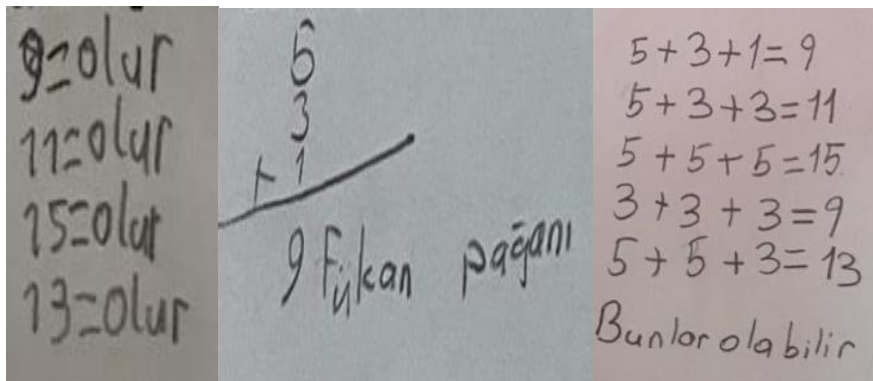 9=olur
11=olur
15=olur
13=olur
5
3
+ 1
9 Fukan pağanı
5+3+1=9
5+3+3=11
5+5+5=15
3+3+3=9
5+5+3=13
Bunlar olabilir